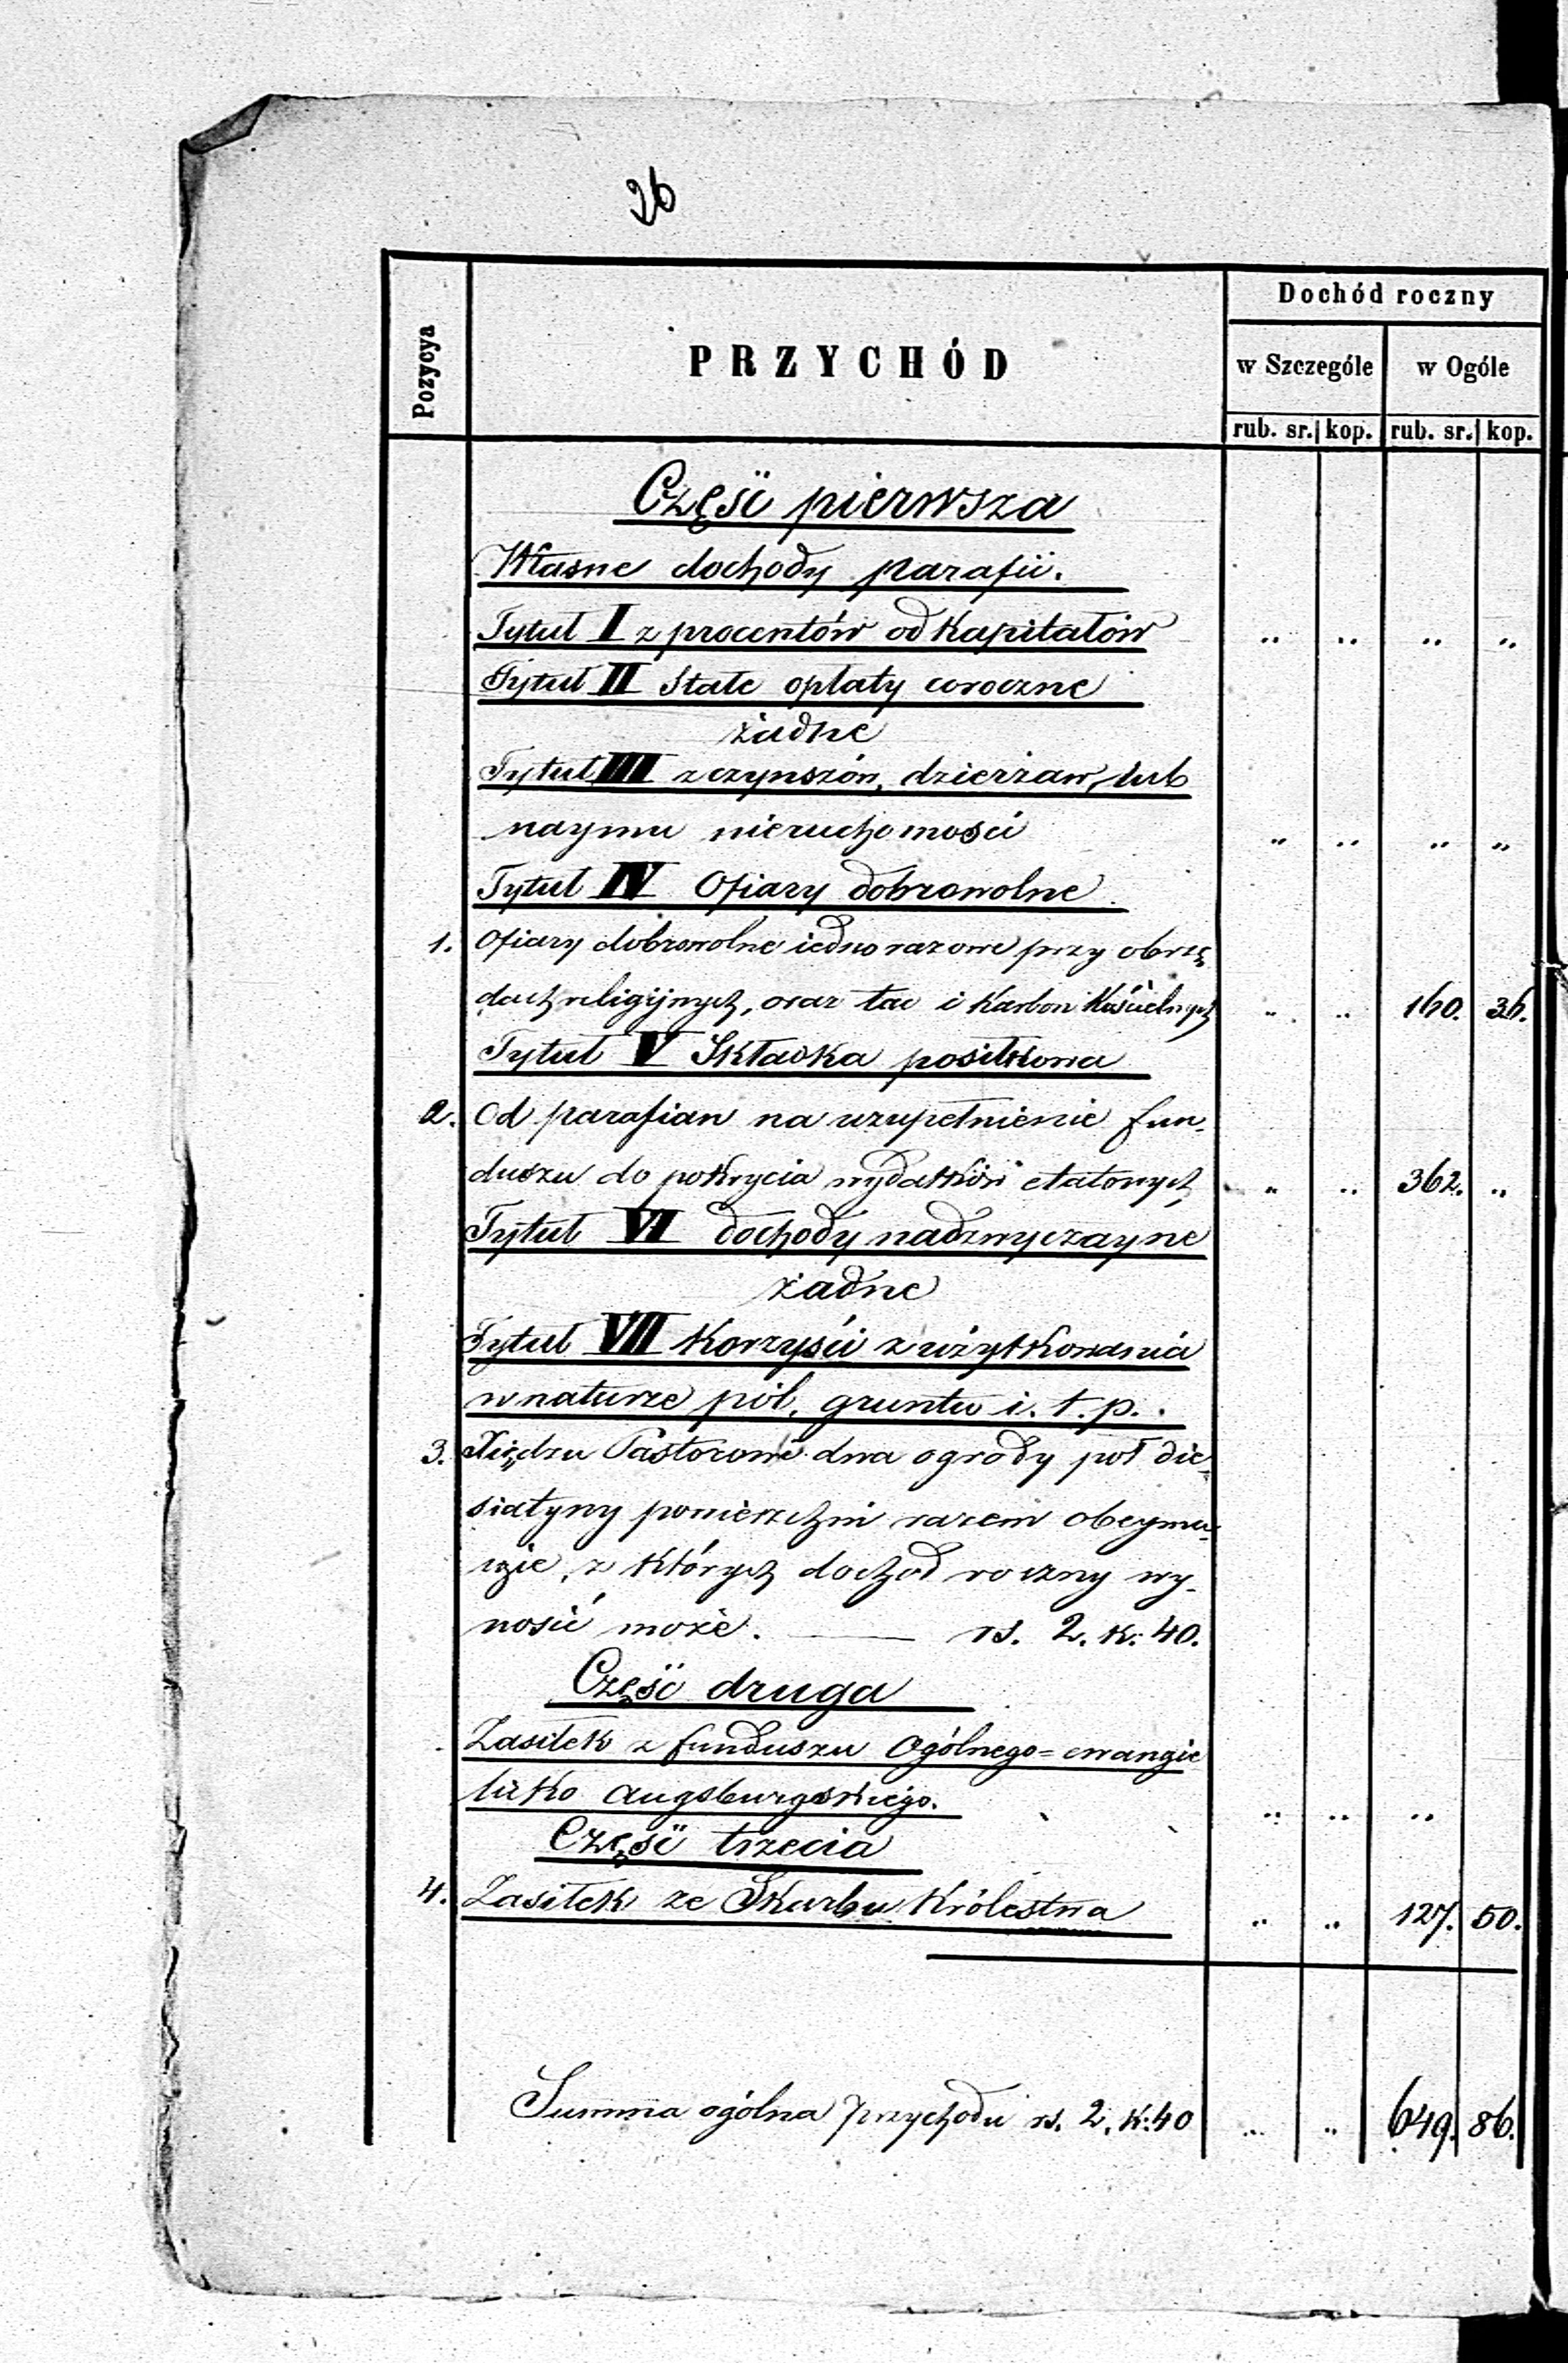 26
Pozycya
PRZYCHÓD
Dochód roczny
w Szczególe w Ogóle
rub. sr. kop. rub. sr. kop.
Część pierwsza
Własne dochody parafii.
Tytuł I z procentów od Kapitałów " " " "
Tytuł II Stałe opłaty coroczne
żadne
Tytuł III z czynszów, dzierżaw, lub
naymu nieruchomości " " " "
Tytuł IV Ofiary dobrowolne
1. Ofiary dobrowolne iednorazowe przy obrzę
dach religijnych, oraz tac i Karbon Kościelnych " " 160. 36.
Tytuł V Składka posiłkowa
2. Od parafian na uzupełnienie fun-
duszu do pokrycia wydatków etatowych " " 362. "
Tytuł VI dochody nadzwyczayne
żadne
Tytuł VII Korzyści z użytkowania
w naturze pól, gruntu i. t. p.
3. Xiędzu Pastorowi dwa ogrody pół die-
siatyny powierzchni razem obeymu-
iące, z których dochód roczny wy-
nosić może. — rs. 2. k: 40.
Część druga
Zasiłek z funduszu Ogólnego=ewangie
licko augsburgskiego. " " "
Część trzecia
4. Zasiłek ze Skarbu Królestwa " " 127. 50.
Summa ogólna Przychodu rs. 2. k:40 " " 649. 86.